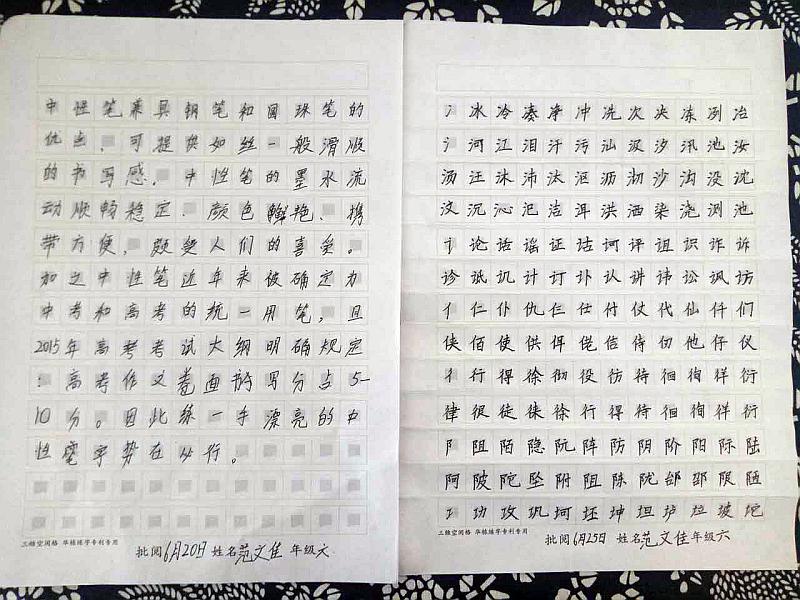 中性笔兼具钢笔和圆珠笔的
优点,可提供如丝一般滑顺
的书写感,中性笔的墨水流
动顺畅稳定、颜色鲜艳、携
带方便,颇受人们的喜爱。
加之中性笔近年来被确定为
中考和高考的统一用笔,且
2015年高考考试大纲明确规定
:高考作文卷面书写分占5-
10分。因此练一手漂亮的中
性笔字势在必行。
三维空间格 华栋练字专利专用
批阅6月20日 姓名范文佳 年级六
冫冰冷凑净冲冼次决冻冽冶
氵河江泪汗污汕汲汐汛池汝
洒汪沐沛汰沤沥沏沙沟没沈
汶沉沁汜洁洱洪洒染浇测池
讠论话谣证诂诃评诅识诈诉
诊诋讥计订讣认讲讳讼讽访
亻仁仆仇仨仕付仗代仙仟们
侠佰使供佴佬信侍仞他仔仪
彳行得徐彻役彷待徊徇徉衍
律很徒徕徐行得待徊徇徉衍
阝阻陌隐阮阵防阴阶阳际陆
阿陂陀坠附阻陈陇部邵限陋
功攻巩坷坯坤坦垆垃坡坨
三维空间格 华栋练字专利专用
批阅6月25日 姓名范文佳 年级六